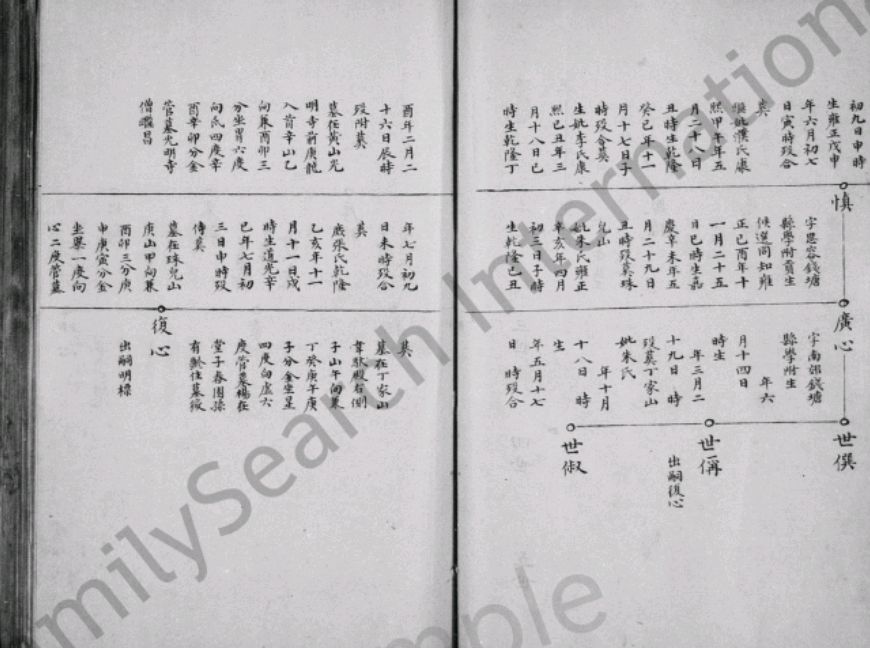 初九日申時
生雍正戊申
年六月初七
日寅時歿合
葬
元配濮氏康
熙甲午年五
月二十八日
丑時生乾隆
癸巳年十一
月十七日子
時歿合葬
生妣李氏康
熙己丑年三
月十八日巳
時生乾隆丁
酉年二月二
十六日辰時
歿附葬
墓在黃山光
明寺前庚龍
入首辛山乙
向兼酉卯三
分坐胃六度
向氐四度辛
酉辛卯分金
管墓光明寺
僧繼昌
慎
字思容錢塘
縣學附貢生
候選同知雍
正己酉年十
一月二十五
日巳時生嘉
慶辛未年五
月二十九日
丑時歿葬珠
兒山
妣朱氏雍正
辛亥年四月
初三日子時
生乾隆己丑
年七月初九
日未時歿合
葬
張氏乾隆
乙亥年十一
月十一日戌
時生道光辛
巳年七月初
三日申時歿
傍葬
墓在珠兒山
庚山甲向兼
酉卯三分庚
申庚寅分金
坐畢一度向
心二度管墓
廣心
字南
錢塘
縣學附生
年六
月十四日
時生
年三月二
十九日 時
歿葬丁家山
妣朱氏
年十月
十八日 時
生
年五月十七
日 時歿合
葬
墓在丁家山
韋馱殿右側
子山午向兼
丁癸庚午庚
子分金坐星
四度向虛六
度管墓楊在
堂子春圃孫
有齡住墓後
復心
出嗣明標
世僎
世偁
出嗣復心
世俶
FamilySearch International
Sample